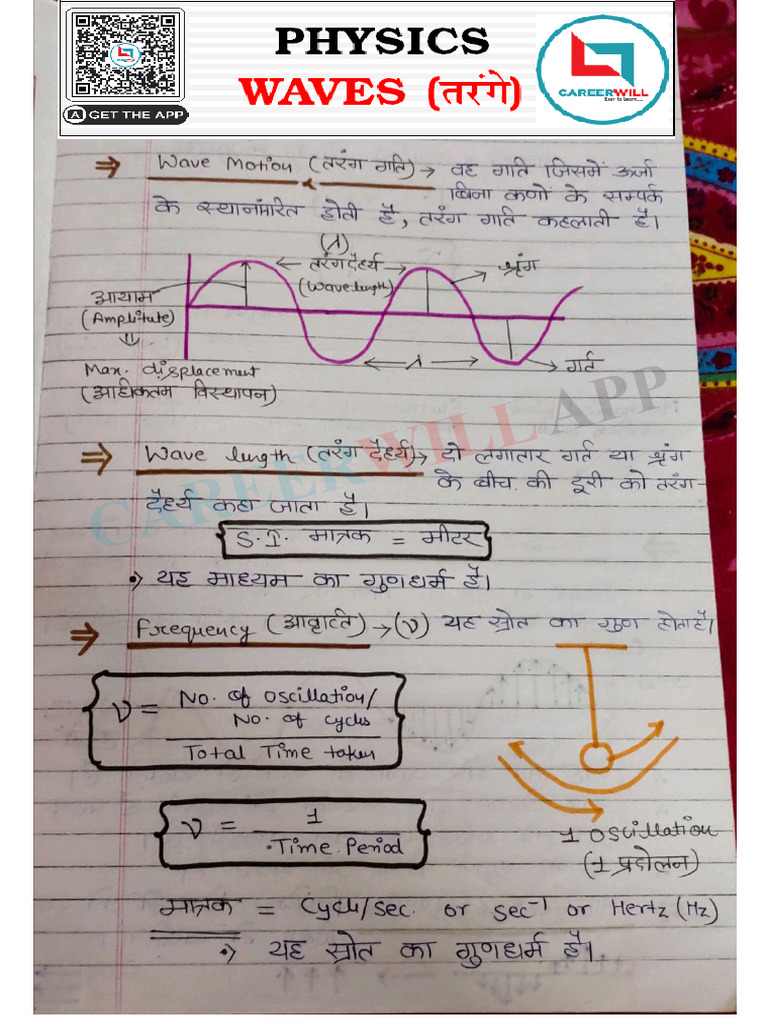 PHYSICS
WAVES (तरंगे)
GET THE APP
CAREERWILL
⇒ Wave Motion (तरंग गति) → वह गति जिसमें ऊर्जा
बिना कणों के सम्पर्क
के स्थानांतरित होती है, तरंग गति कहलाती है।
(λ)
← तरंगदैर्ध्य →
(Wavelength)
श्रृंग
आयाम
(Amplitute)
⇓
Max. displacement
(अधिकतम विस्थापन)
← λ →
गर्त
CAREERWILL APP
⇒ Wave length (तरंग दैर्ध्य) → दो लगातार गर्त या श्रृंग
के बीच की दूरी को तरंग-
दैर्ध्य कहा जाता है।
S.I. मात्रक = मीटर
यह माध्यम का गुणधर्म है।
⇒ Frequency (आवृत्ति) → (ν) यह स्रोत का गुण होता है।
ν = No. of oscillation/
No. of cycles
Total Time taken
ν = 1
Time Period
1 Oscillation
(1 प्रदोलन)
मात्रक = Cycle/sec. or sec⁻¹ or Hertz (Hz)
यह स्रोत का गुणधर्म है।